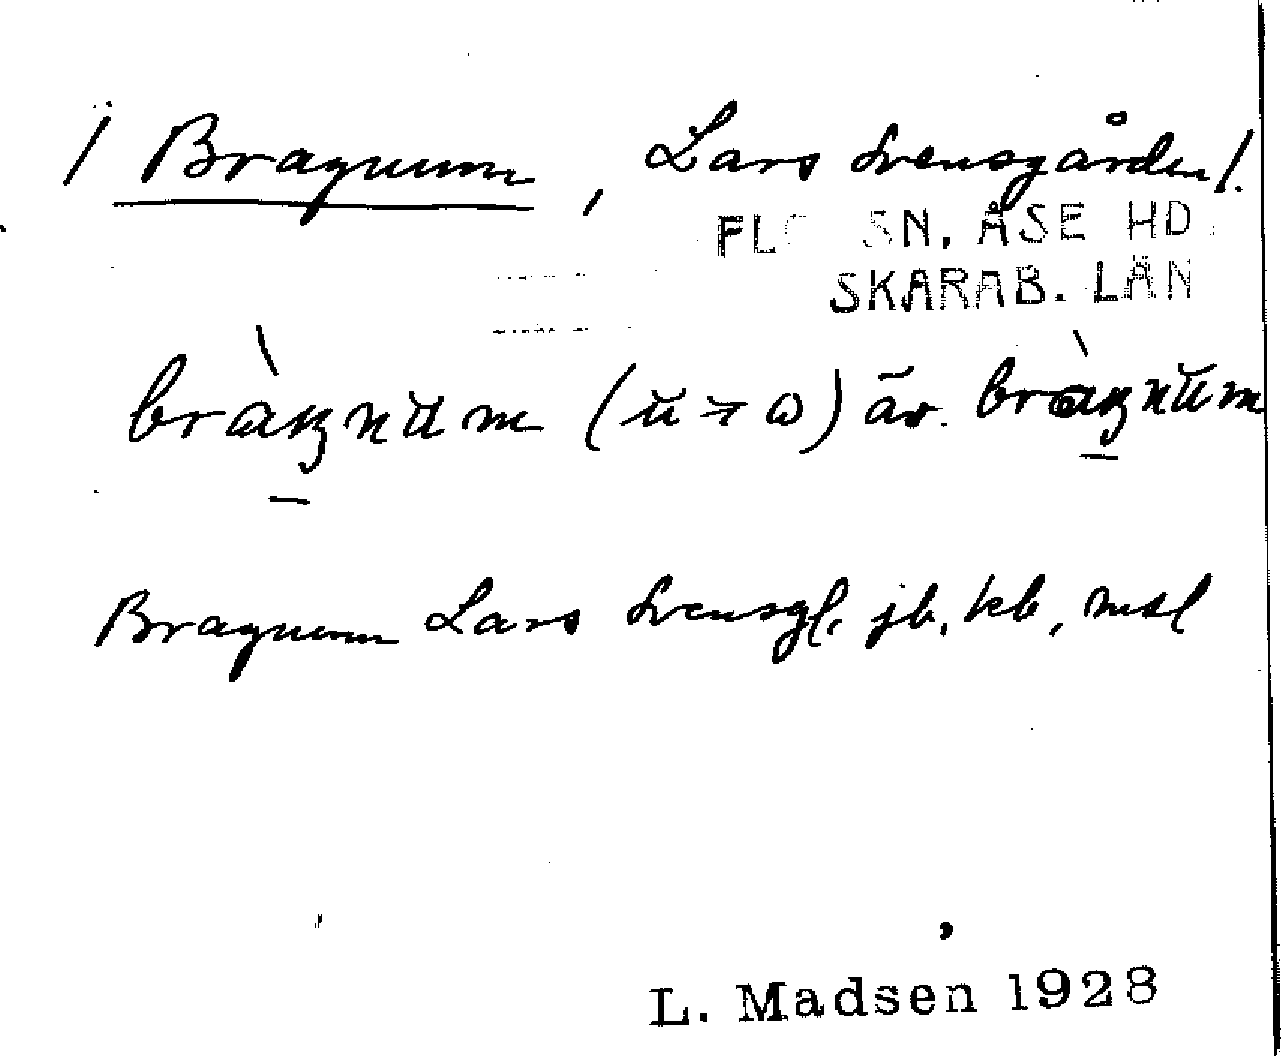 / Bragnum, Lars Svensgården /.
FLO SN. ÅSE HD
SKARAB. LÄN
bràꞑnŭm (ŭ → ω) äv. bràꞑnŭm
Bragnum Lars Svensg jb, kb, msl
L. Madsen 1928